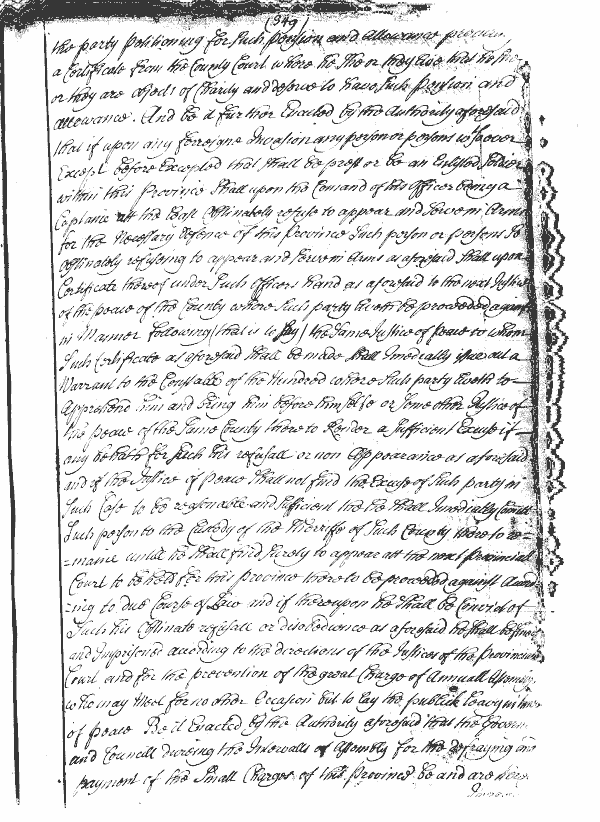 (349)
the party petitioning for Such pension and Allowance procure
a Certificate from the County Court where he She or they live that he She
or they are objects of Charity and deserve to have Such Pension and
allowance. And be it further Enacted by the Authority aforesaid
that if upon any forreigne Invasion any person or persons whatsoever
Except before Excepted that Shall be prest or be an Enlisted Soldier
within this Province Shall upon the Comand of his Officer being a
Captaine att the least Obstinately refuse to appear and Serve in Arms
for the Necessary defence of this Province Such person or persons So
Obstinately refuseing to appear and Serve in Arms as aforesaid Shall upon
Certificate thereof under Such Officers hand as aforesaid to the next Justice
of the peace of the County where Such party liveth be proceeded against
in Manner following (that is to Say) the Same Justice of peace to whom
Such Certificate as aforesaid shall be made shall Imediately issue out a
Warrant to the Constable of the Hundred where Such party liveth to
Apprehend him and bring him before himselfe or Some other Justice of
the peace of the Same County there to Render a Sufficient Excuse if
any he hath for Such his refusall or non Appearance as aforesaid
and if the Justice of Peace Shall not find the Excuse of Such party in
Such Case to be reasonable and Sufficient the he Shall Imediately Comitt
Such person to the Custody of the Sherriffe of Such County there to re=
=maine untill he Shall find Surety to appear att the next Provinciall
Court to be held for this province there to be proceeded against Accord
=ing to due Course of Law and if thereupon he Shall be Convict of
Such his Obstinate refusall or disobedience as aforesaid he shall be fined
and Imprisoned according to the directions of the Justices of the Provinciall
Court and for the prevention of the great Charge of Annuall Assembly
who may Meet for no other Occasion but to lay the publick Leavy in time
of peace Be it Enacted by the Authority aforesaid that the Govern
and Councill dureing the Intervalls of Assembly for the defraying and
payment of the Small Charges of this Province be and are here